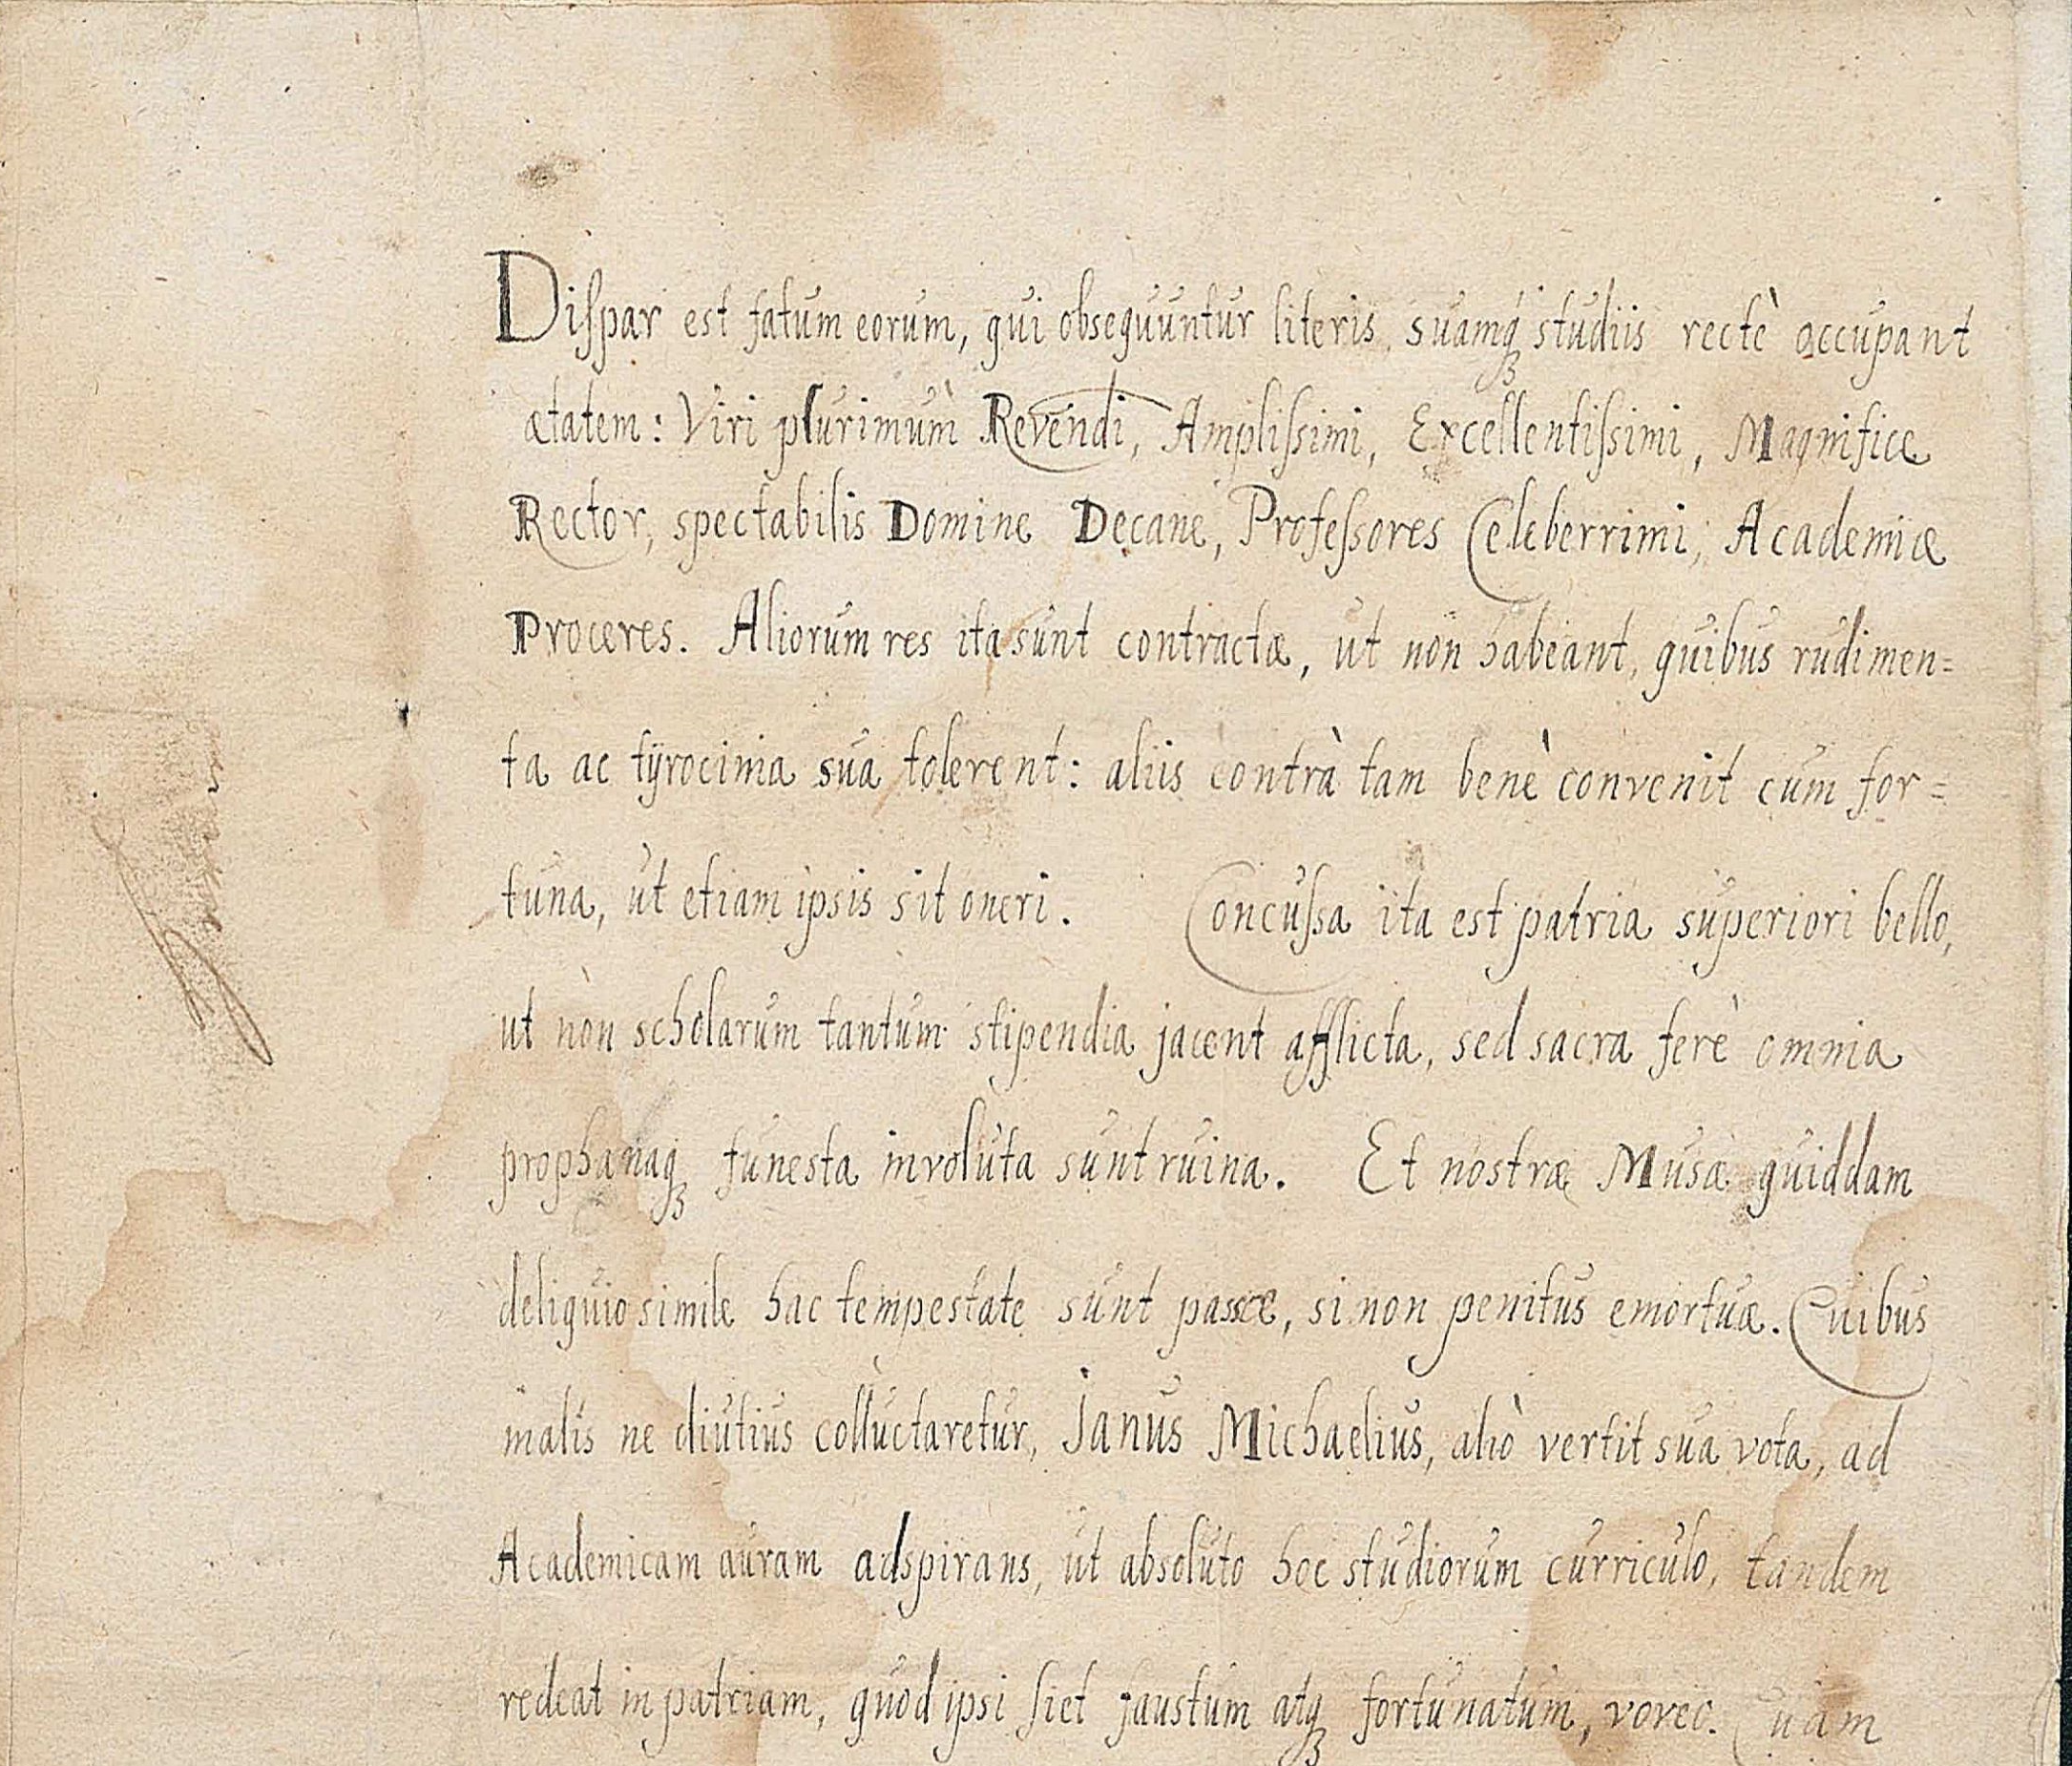 Diſpar est fatum eorum, qui obsequuntur literis suamq́ꝫ studiis rectè occupant
ætatem: Viri plurimùm Revendi, Ampliſsimi, Excellentiſsimi, Magnifice
Rector, spectabilis Domine Decane, Profeſsores Celeberrimi, Academiæ
Proceres. Aliorum res ita sunt contractæ, ut non habeant, quibus rudimen=
ta ac tÿrocinia sua tolerent: aliis contrà tam benè convenit cum for=
tuna, ut etiam ipsis sit oneri. Concuſsa ita est patria superiori bello,
ut non scholarum tantum stipendia jacent afflicta, sed sacra ferè omnia
prophanaqꝫ funesta involuta sunt ruina. Et nostræ Musæ quiddam
deliquio simile hac tempestate sunt passæ, si non penitus emortuæ. Quibus
malis ne diutius colluctaretur, Janus Michaelius, aliò vertit sua vota, ad
Academicam auram adspirans, ut absoluto hoc studiorum curriculo, tandem
redeat in patriam, quod ipsi siet faustum atqꝫ fortunatum, voveo. Quam